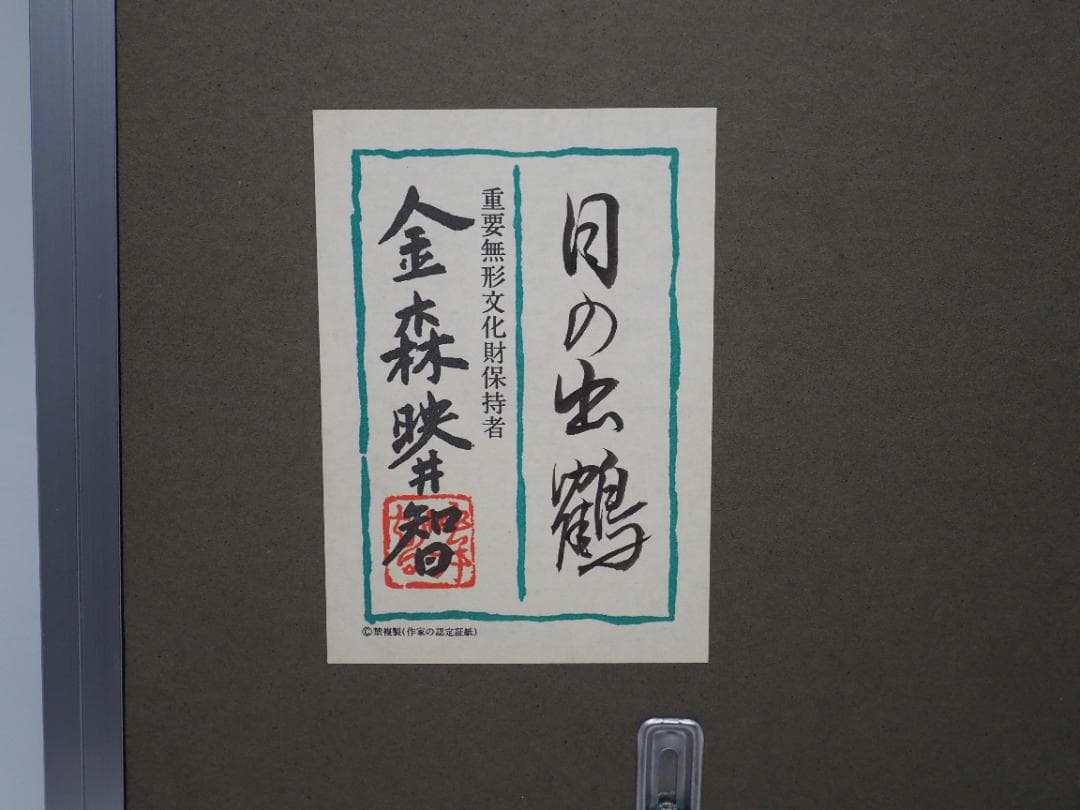 日の出鶴
重要無形文化財保持者
金森映井智
©禁複製(作家の認定証紙)